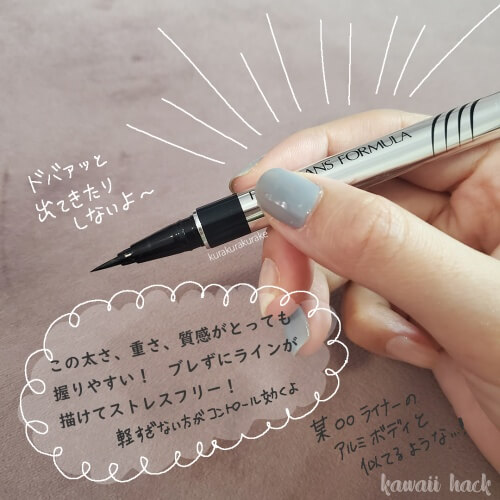 ドバァッと
出てきたり
しないよ～
ANS FORMULA
kurakurakurake
この太さ、重さ、質感がとっても
握りやすい！ ブレずにラインが
描けてストレスフリー！
軽すぎない方がコントロール効くよ
某〇〇ライナーの
アルミボディと
似てるような…!
kawaii hack